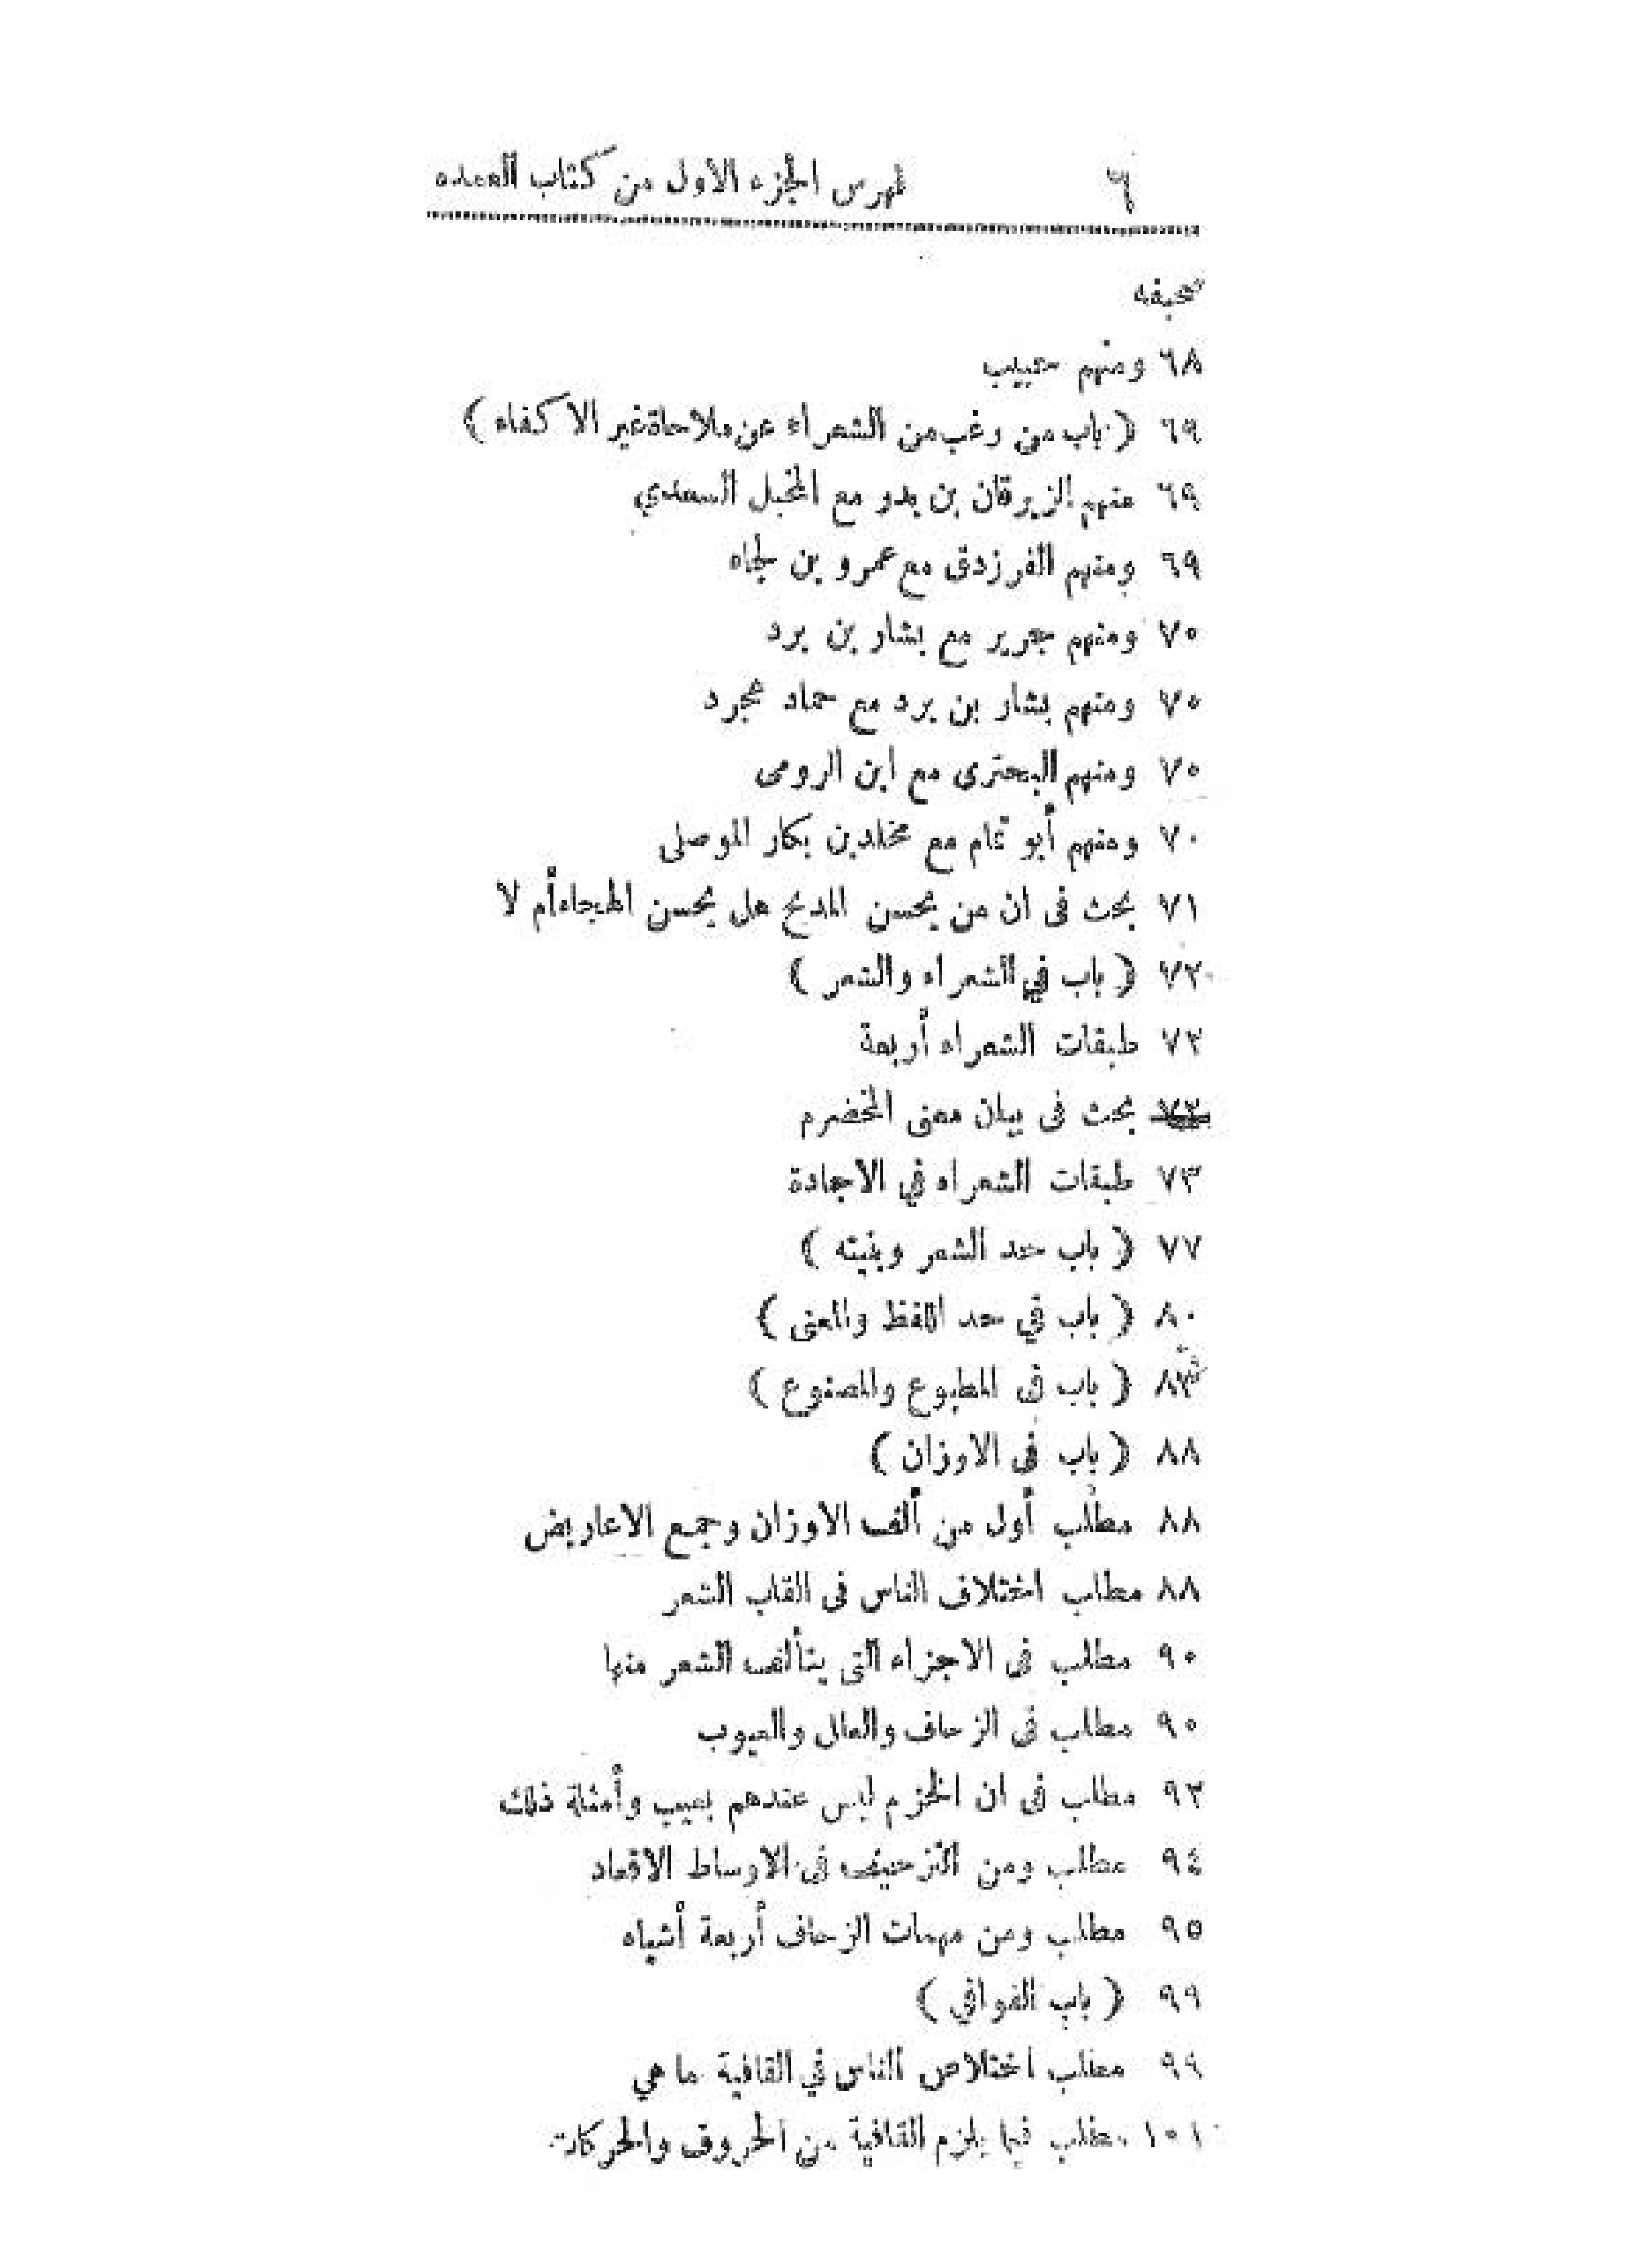 ٦ فهرس الجزء الأول من كتاب العمده
صحيفه
٦٨ ومنهم حبيب
٦٩ ( باب من رغب من الشعراء عن ملاحاة غير الاكفاء )
٦٩ منهم الزبرقان بن بدر مع المخبل السعدي
٦٩ ومنهم الفرزدق مع عمرو بن لجاء
٧٠ ومنهم جرير مع بشار بن برد
٧٠ ومنهم بشار بن برد مع حماد عجرد
٧٠ ومنهم البحترى مع ابن الرومى
٧٠ ومنهم أبو تمام مع مخلد بن بكار الموصلى
٧١ بحث فى ان من يحسن المديح هل يحسن الهجاء أم لا
٧٢ ( باب في الشعراء والشعر )
٧٢ طبقات الشعراء أربعة
بحث فى بيان معنى المخضرم
٧٣ طبقات الشعراء في الاجادة
٧٧ ( باب حد الشعر وبنيته )
٨٠ ( باب في حد اللفظ والمعنى )
( باب فى المطبوع والمصنوع )
٨٨ ( باب فى الاوزان )
٨٨ مطلب أول من ألف الاوزان وجمع الاعاريض
٨٨ مطلب اختلاف الناس فى القاب الشعر
٩٠ مطلب فى الاجزاء التى يتألف الشعر منها
٩٠ مطلب فى الزحاف والعلل والعيوب
٩٣ مطلب فى ان الخزم ليس عندهم بعيب وأمثلة ذلك
٩٤ مطلب ومن التزحيف فى الاوساط الاقعاد
٩٥ مطلب ومن مهمات الزحاف أربعة أشياء
٩٩ ( باب القوافي )
٩٩ مطلب اختلاف الناس في القافية ما هي
١٠١ مطلب فيما يلزم القافية من الحروف والحركات